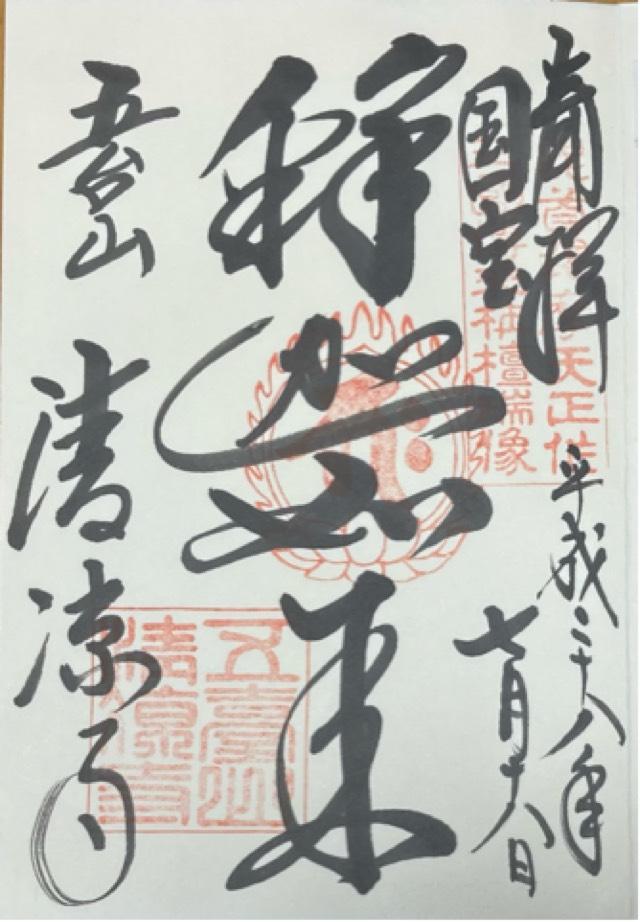 奉拝
国宝
平成二十八年
七月十八日
釈迦如来
五台山
清凉寺
栴檀瑞像
五臺山
清凉寺